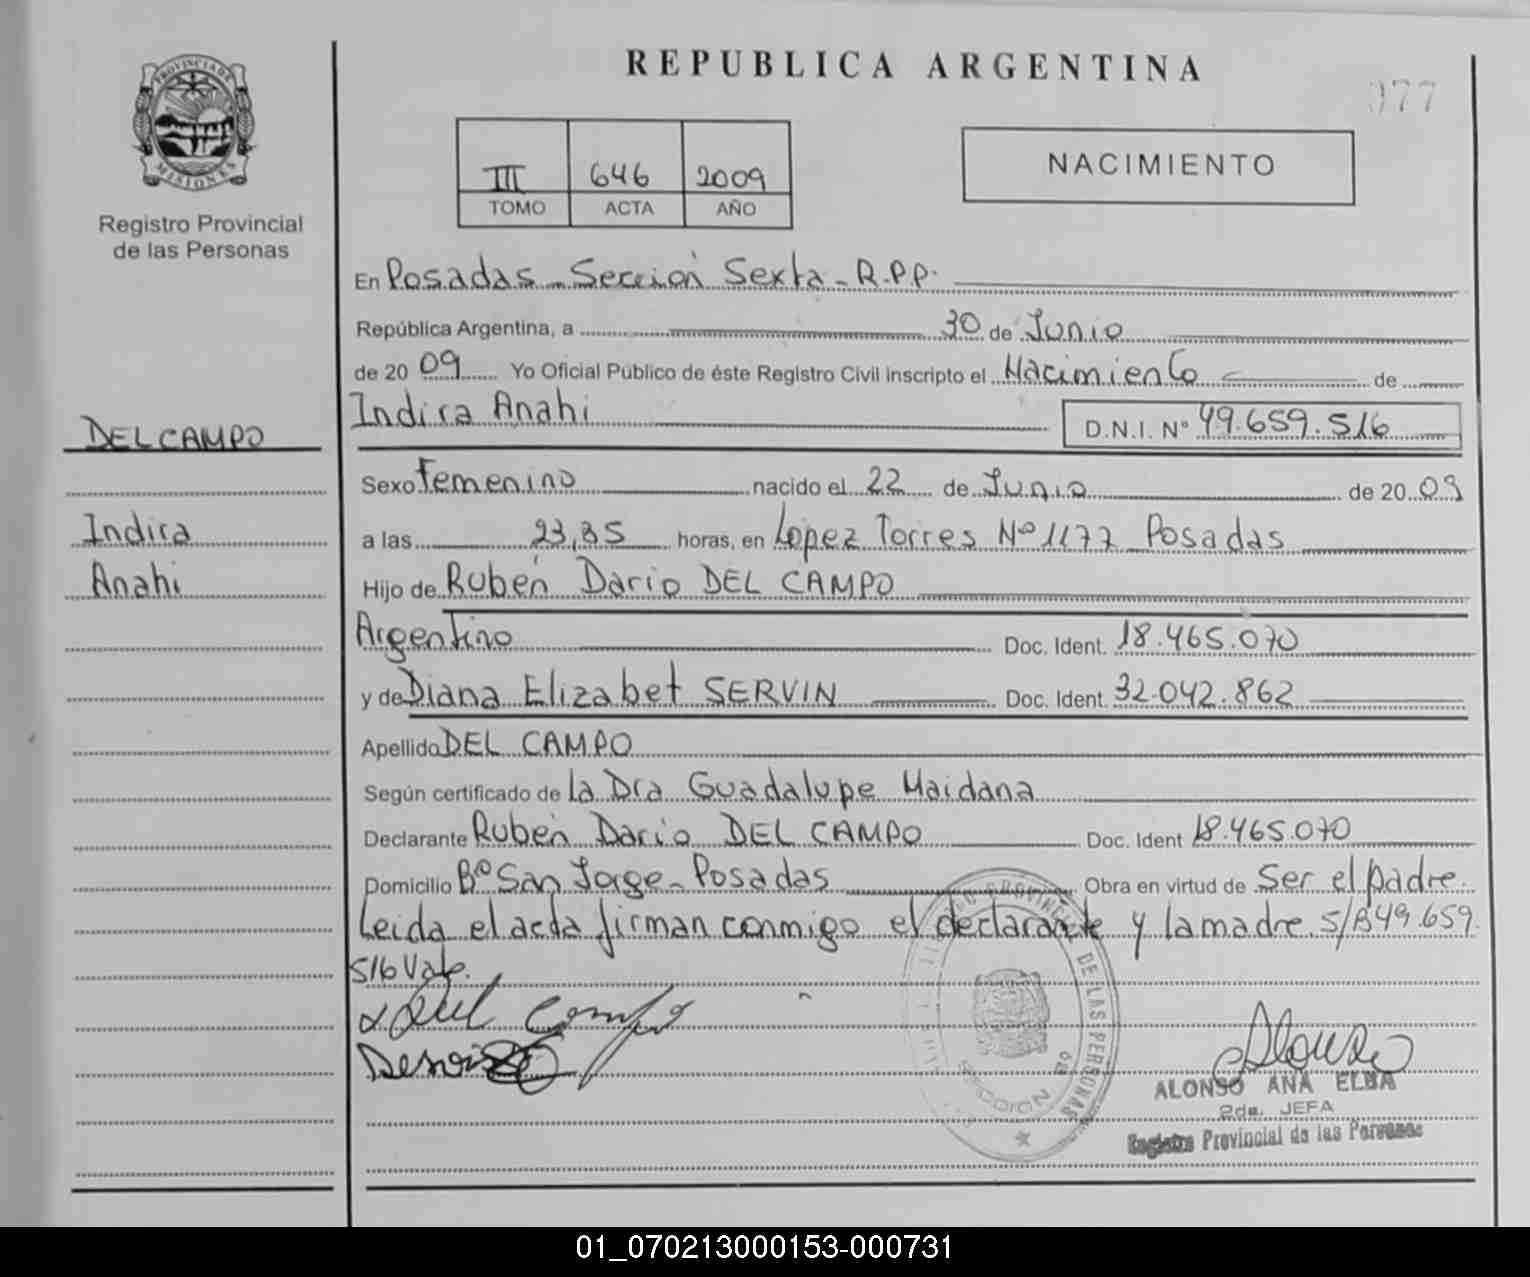 REPUBLICA ARGENTINA
377
PROVINCIA DE
MISIONES
Registro Provincial
de las Personas
III 646 2009
TOMO ACTA AÑO
NACIMIENTO
En Posadas - Sección Sexta - R.P.P.
República Argentina, a 30 de Junio
de 20 09 Yo Oficial Público de éste Registro Civil inscripto el Nacimiento de
Indira Anahi D.N.I. Nº 49.659.516
DEL CAMPO
Indira
Anahi
Sexo Femenino nacido el 22 de Junio de 20 09
a las 23,35 horas, en López Torres Nº 1177 Posadas
Hijo de Rubén Dario DEL CAMPO
Argentino Doc. Ident. 18.465.070
y de Diana Elizabet SERVIN Doc. Ident. 32.042.862
Apellido DEL CAMPO
Según certificado de la Dra Guadalupe Maidana
Declarante Rubén Dario DEL CAMPO Doc. Ident 18.465.070
Domicilio Bº San Jorge - Posadas Obra en virtud de Ser el padre.
Leida el acta firman conmigo el declarante y la madre. S/B 49.659.
516 Vale.
Del Campo
DE LAS PERSONAS
SECCION
ALONSO ANA ELBA
2da. JEFA
Registro Provincial de las Personas
01_070213000153-000731